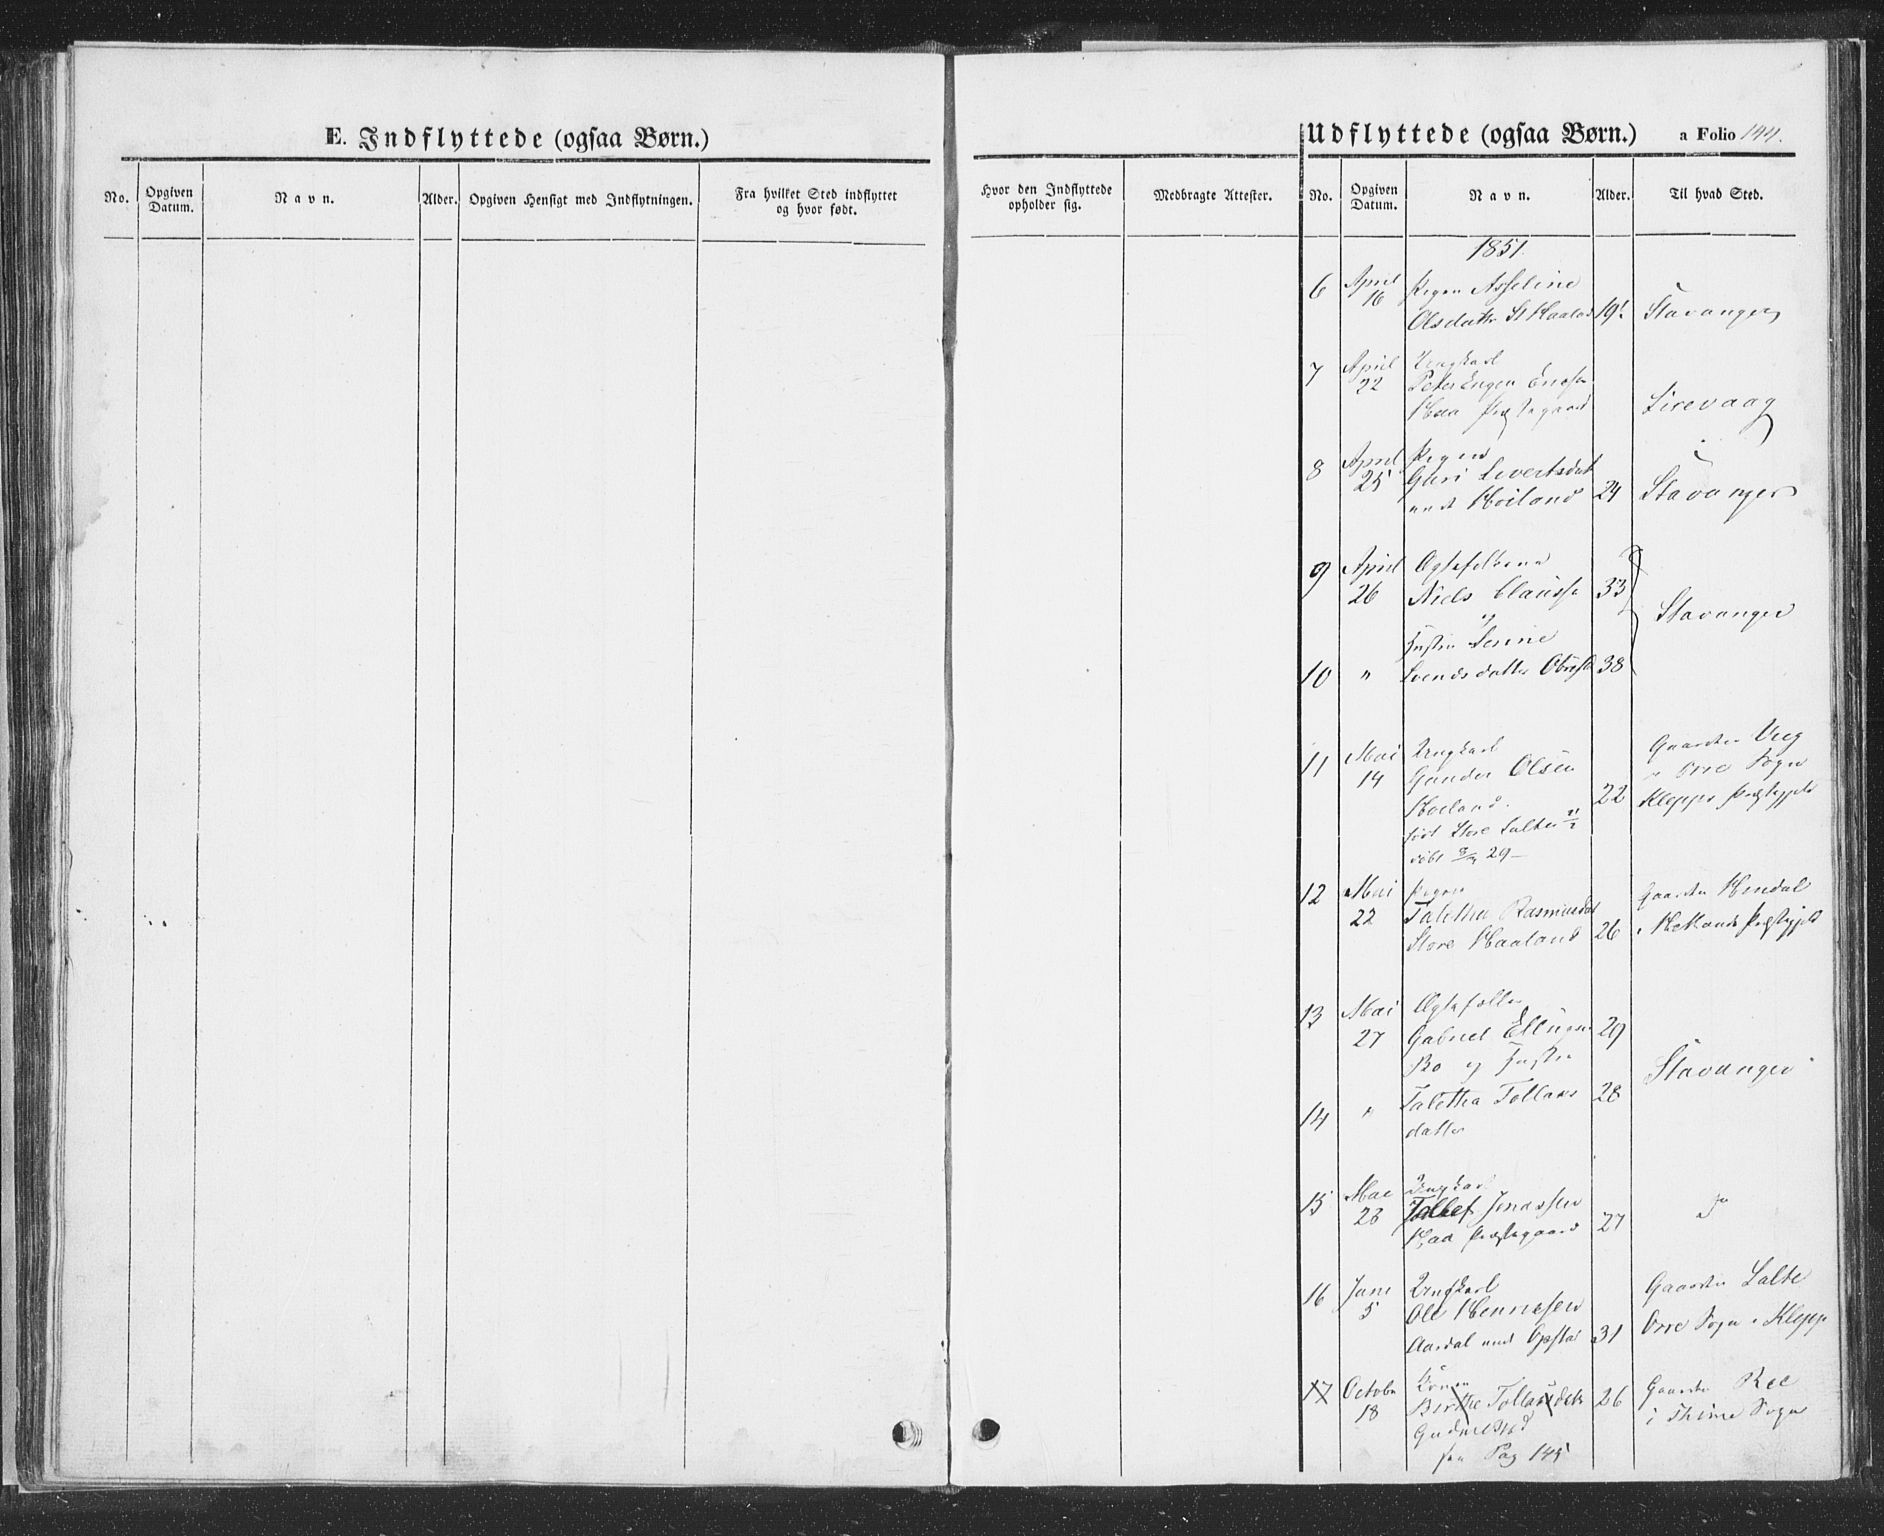 E. Indflyttede (ogsaa Børn.)
No.
Opgiven Datum.
Navn.
Alder.
Opgiven Hensigt med Indflytningen.
Fra hvilket Sted indflyttet
og hvor født.
Hvor den Indflyttede
opholder sig.
Medbragte Attester.
Udflyttede (ogsaa Børn.)
a Folio 144.
No.
Opgiven Datum.
Navn.
Alder.
Til hvad Sted.
1851
6 April 16 Pigen Asseline
Olsdatter St Haaland 19½ Stavanger
7 April 22 Ungkarl
Peter
Haa Præstegaard Sirevaag
8 April 25 Pigen
Guri Sivertsdat
Hoiland 24 Stavanger
9 April 26 Ægtefolkene
Niels Clausse 33
og Stavanger
10 " Hustru Serine
Svendsdatter Obrest 38
11 Mai 14 Ungkarl Gaarden Vig
Gunder Olsen i Orre Sogn
Hoiland 22 Klepps Præstegjeld
født Store Salte
døbt 29
12 Mai 22 Pigen Gaarden
Taletha Rasmusdat
Store Haaland 26 Hetlands Præstegjeld
13 Mai 27 Ægtefolk
Gabriel Ellingsen 29
Bo og Hustru Stavanger
14 " Taletha Tollaks 28
datter
15 Mai 28 Ungkarl
Tollef Jonassen
Haa Præstegaard 27
16 Juni 5 Ungkarl Gaarden Salte
Ole Hennesen Orre Sogn i Klepp
Aardal und Opstad 31
17 October 18 Konen Gaarden Ree
Birthe Tollaksdatr 26 i Thime Sogn
Gudmestad
see Pag 145